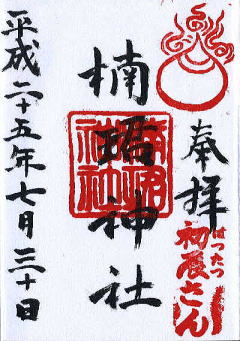 奉拝
はったつ
初辰さん
楠珺神社
平成二十五年七月三十日